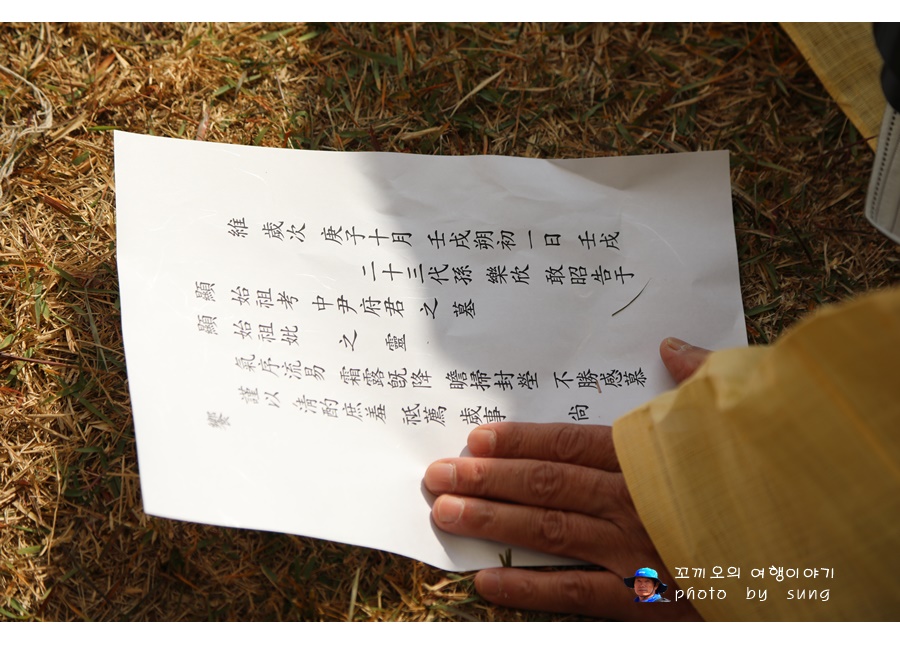 維 歲次 庚子十月 壬戌朔初一日 壬戌
二十三代孫 樂欣 敢昭告于
顯 始祖考 中尹府君 之 墓
顯 始祖妣 之 靈
氣序流易 霜露旣降 瞻掃封塋 不勝感慕
謹以 淸酌庶羞 祗薦 歲事 尙
饗
꼬끼오의 여행이야기
photo by sung